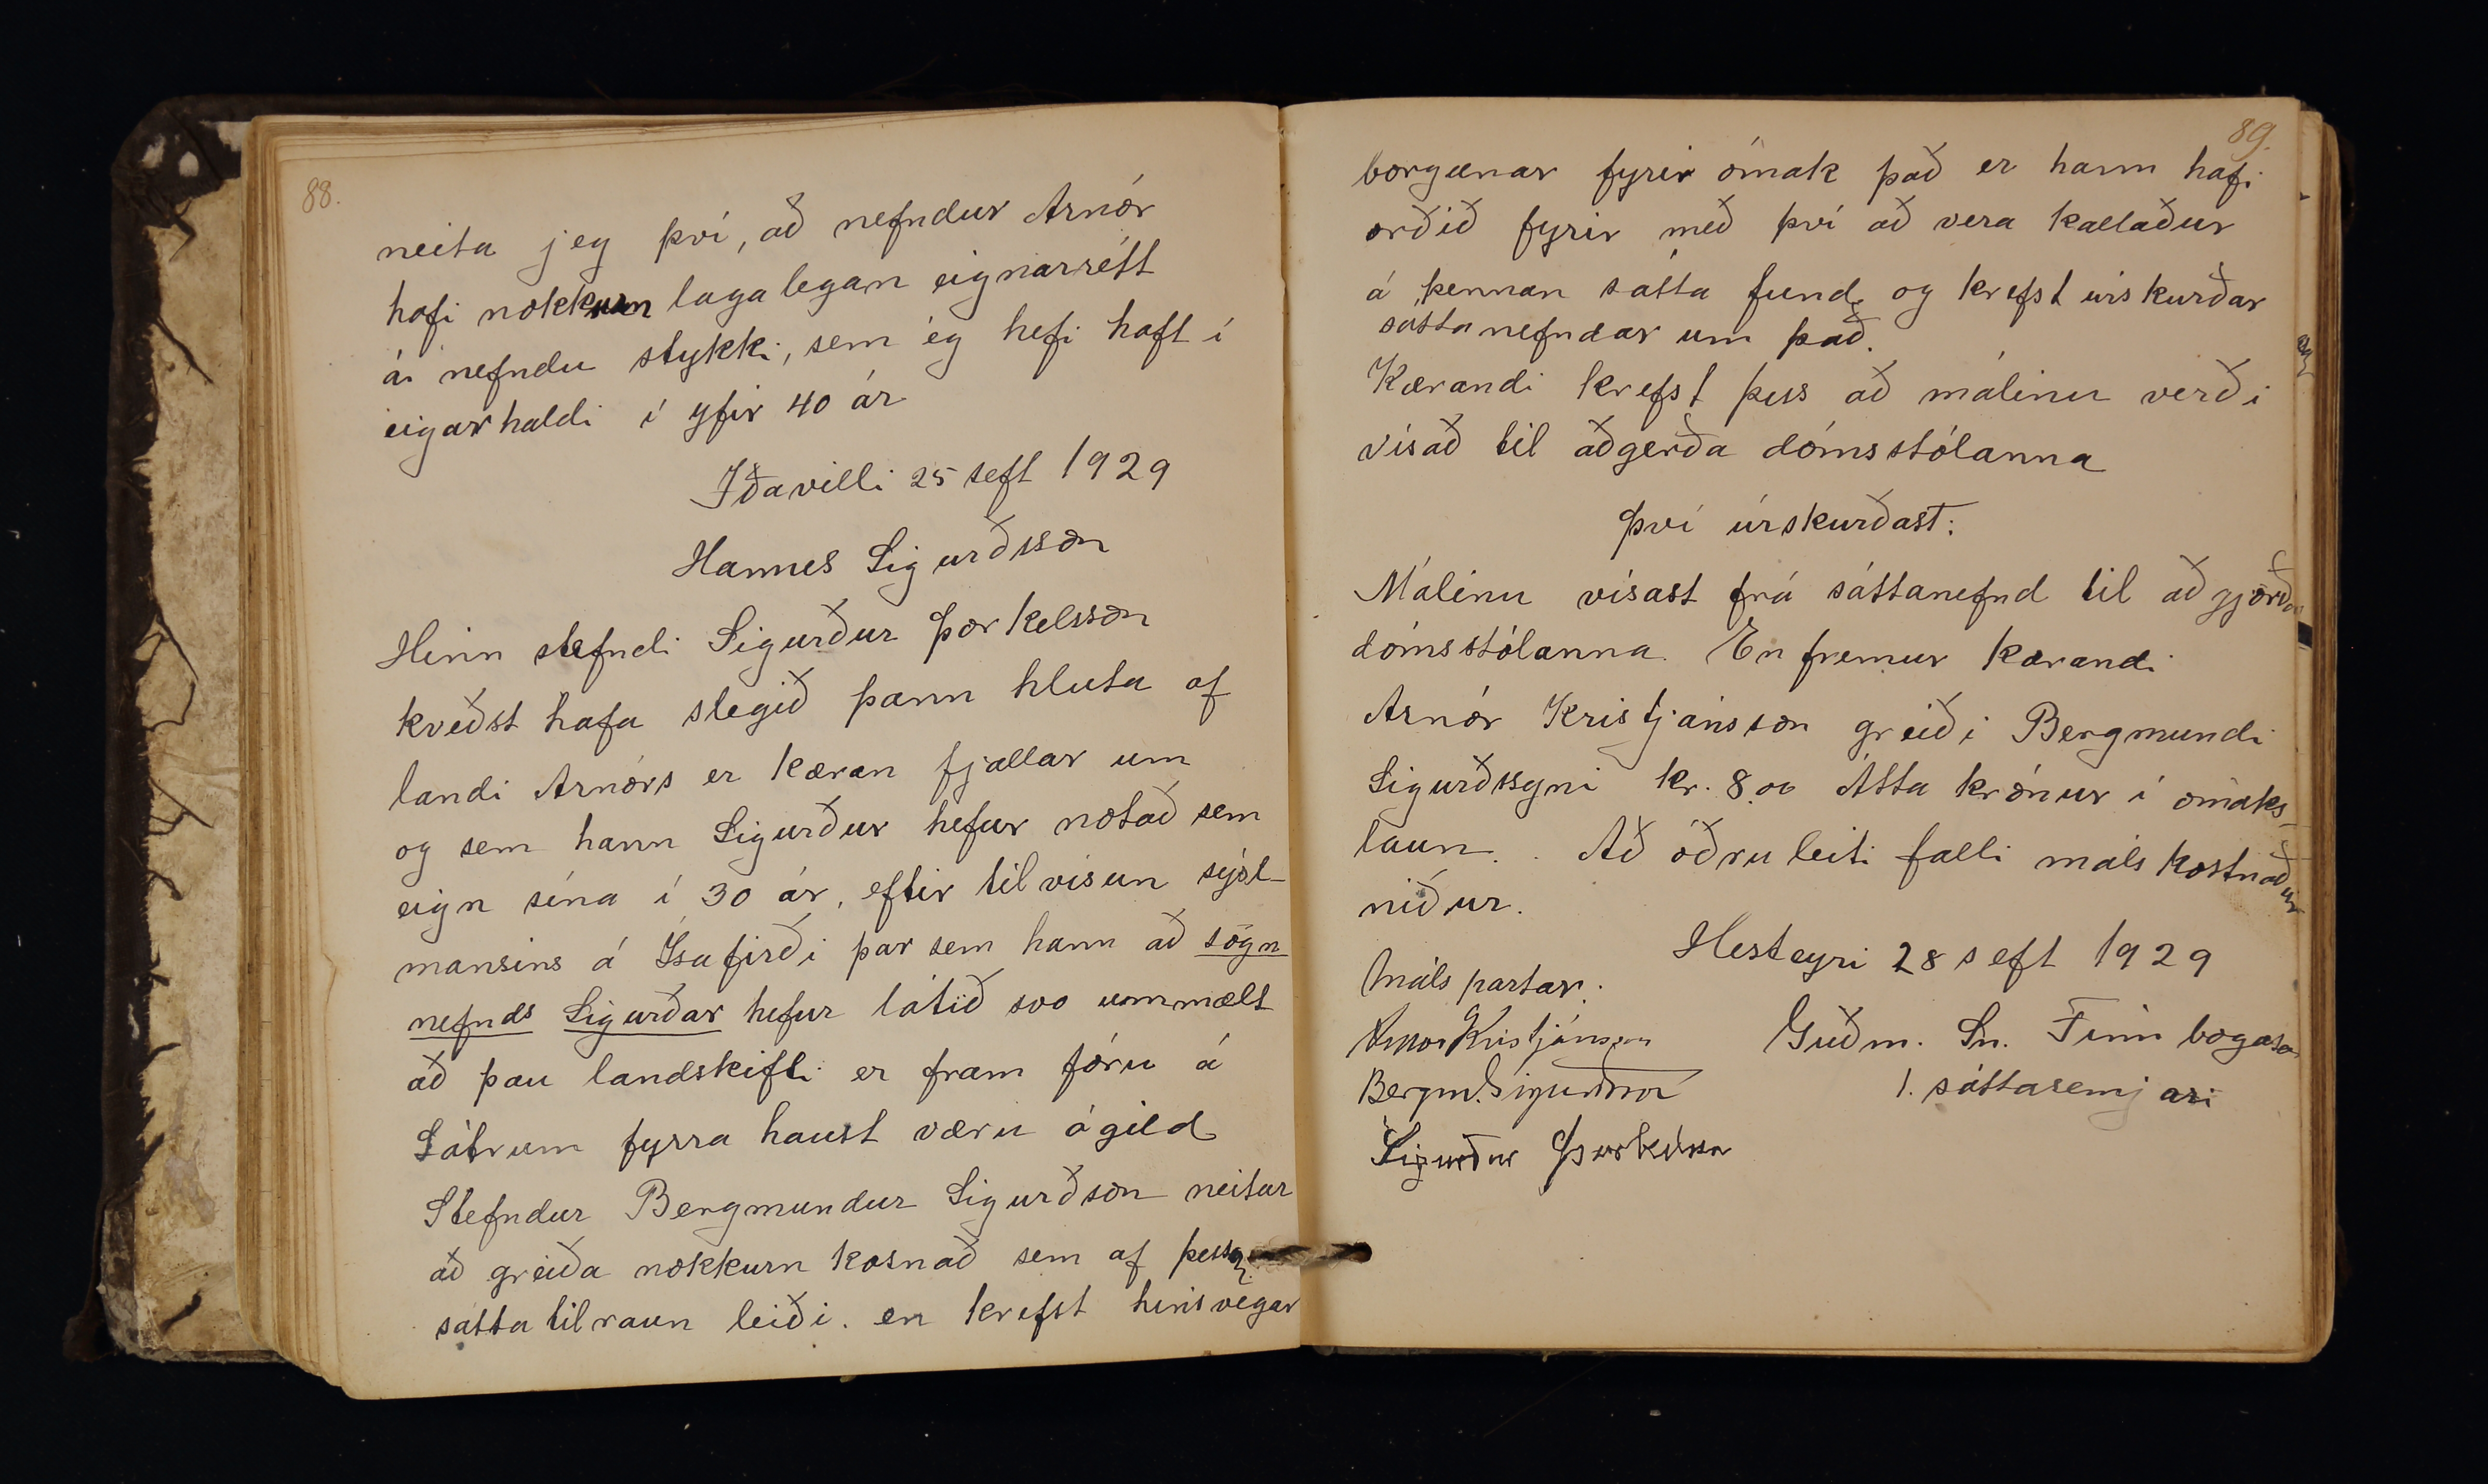 88.
neita jeg því, að nefndur Arnór
hafi nokkurn lagalegan eignarrétt
á nefndu stykki, sem ég hefi haft í
eigarhaldi í yfir 40 ár
Iðavelli 25 seft 1929
Hannes Sigurðsson
Hinn stefndi Sigurður Þorkelsson
kveðst hafa slegið þann hluta af
landi Arnórs er kæran fjallar um
og sem hann Sigurður hefur notað sem
eign sína í 30 ár, eftir tilvísun sýsl-
mansins á Ísafirði þar sem hann að sögn
nefnds Sigurðar hefur látið svo ummælt
að þau landskifti er fram fóru á
Látrum fyrra haust væru ógild
Stefndur Bergmundur Sigurðson neitar
að greiða nokkurn kosnað sem af þessa
sátta tilraun leiði. en krefst hinsvegar
89.
borgunar fyrir ómak það er hann hafi
orðið fyrir með því að vera kallaður
á þennan sátta fund, og krefst úrskurðar
sáttanefndar um það.
Kærandi krefst þess að málinu verði
vísað til aðgerða dómsstólanna
Því úrskurðast:
Málinu vísast frá sáttanefnd til aðgjörða
dómsstólanna. En fremur kærandi
Arnór Kristjánsson greiði Bergmundi
Sigurðssyni kr. 8.00 Átta krónur í ómaks-
laun. Að öðru leiti falli málskostnaður
niður.
Hesteyri 28 seft 1929
Máls partar:
Arnór Kristjánsson Guðm. Sn. Finnbogason
Bergm. Sigurðsson 1. sáttasemjari
Sigurður Þorkelsson